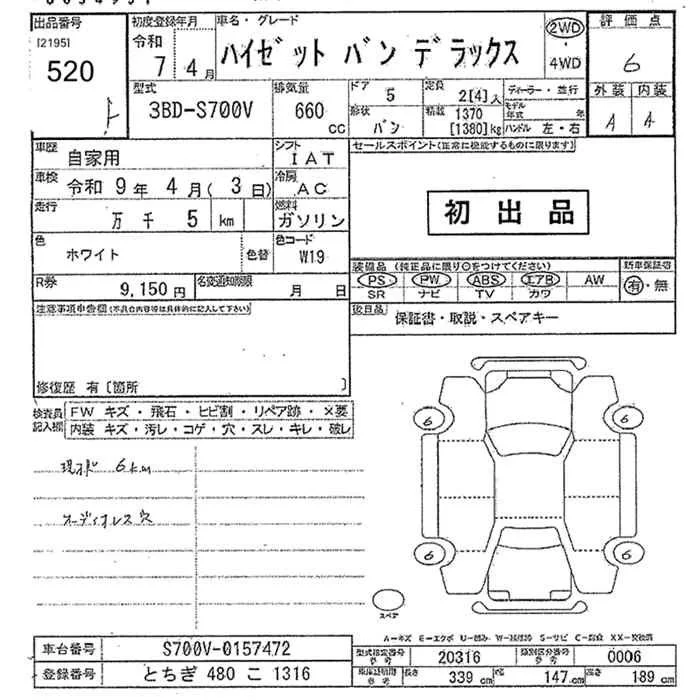 出品番号
I2195I
520
初度登録年月
令和
7 4月
車名・グレード
ハイゼット バン デラックス
2WD
・
4WD
評価点
6
外装 内装
A A
型式
3BD-S700V
排気量
660
cc
ドア
5
形状
バン
定員
2[4]人
積載
1370
[1380]kg
ディーラー・並行
モデル
年式 年
ハンドル 左・右
車歴
自家用
シフト
IAT
車検
令和 9年 4月( 3日)
冷房
AC
走行
万 千 5 km
燃料
ガソリン
色
ホワイト
色替
色コード
W19
R券
9,150円
名変通知期限
月 日
セールスポイント(正常に機能するものに限ります)
初出品
装備品 (純正品に限り○をつけてください)
新車保証書
PS PW ABS エアB AW
SR ナビ TV カワ
有・無
後日品
保証書・取説・スペアキー
注意事項申告欄(不具合内容等は具体的に記入して下さい)
修復歴 有〔箇所 〕
検査員
記入欄
FW キズ・飛石・ヒビ割・リペア跡・×要
内装 キズ・汚レ・コゲ・穴・スレ・キレ・破レ
現状 6km
オーディオレス穴
6 6
6 6
スペア
A-キズ E-エクボ U-凹み W-波板 S-サビ C-腐食 XX-交換済
車台番号
S700V-0157472
登録番号
とちぎ 480 こ 1316
型式指定番号
参考
20316
類別区分番号
参考
0006
車庫証明用
参考
長さ
339 cm
幅
147 cm
高さ
189 cm